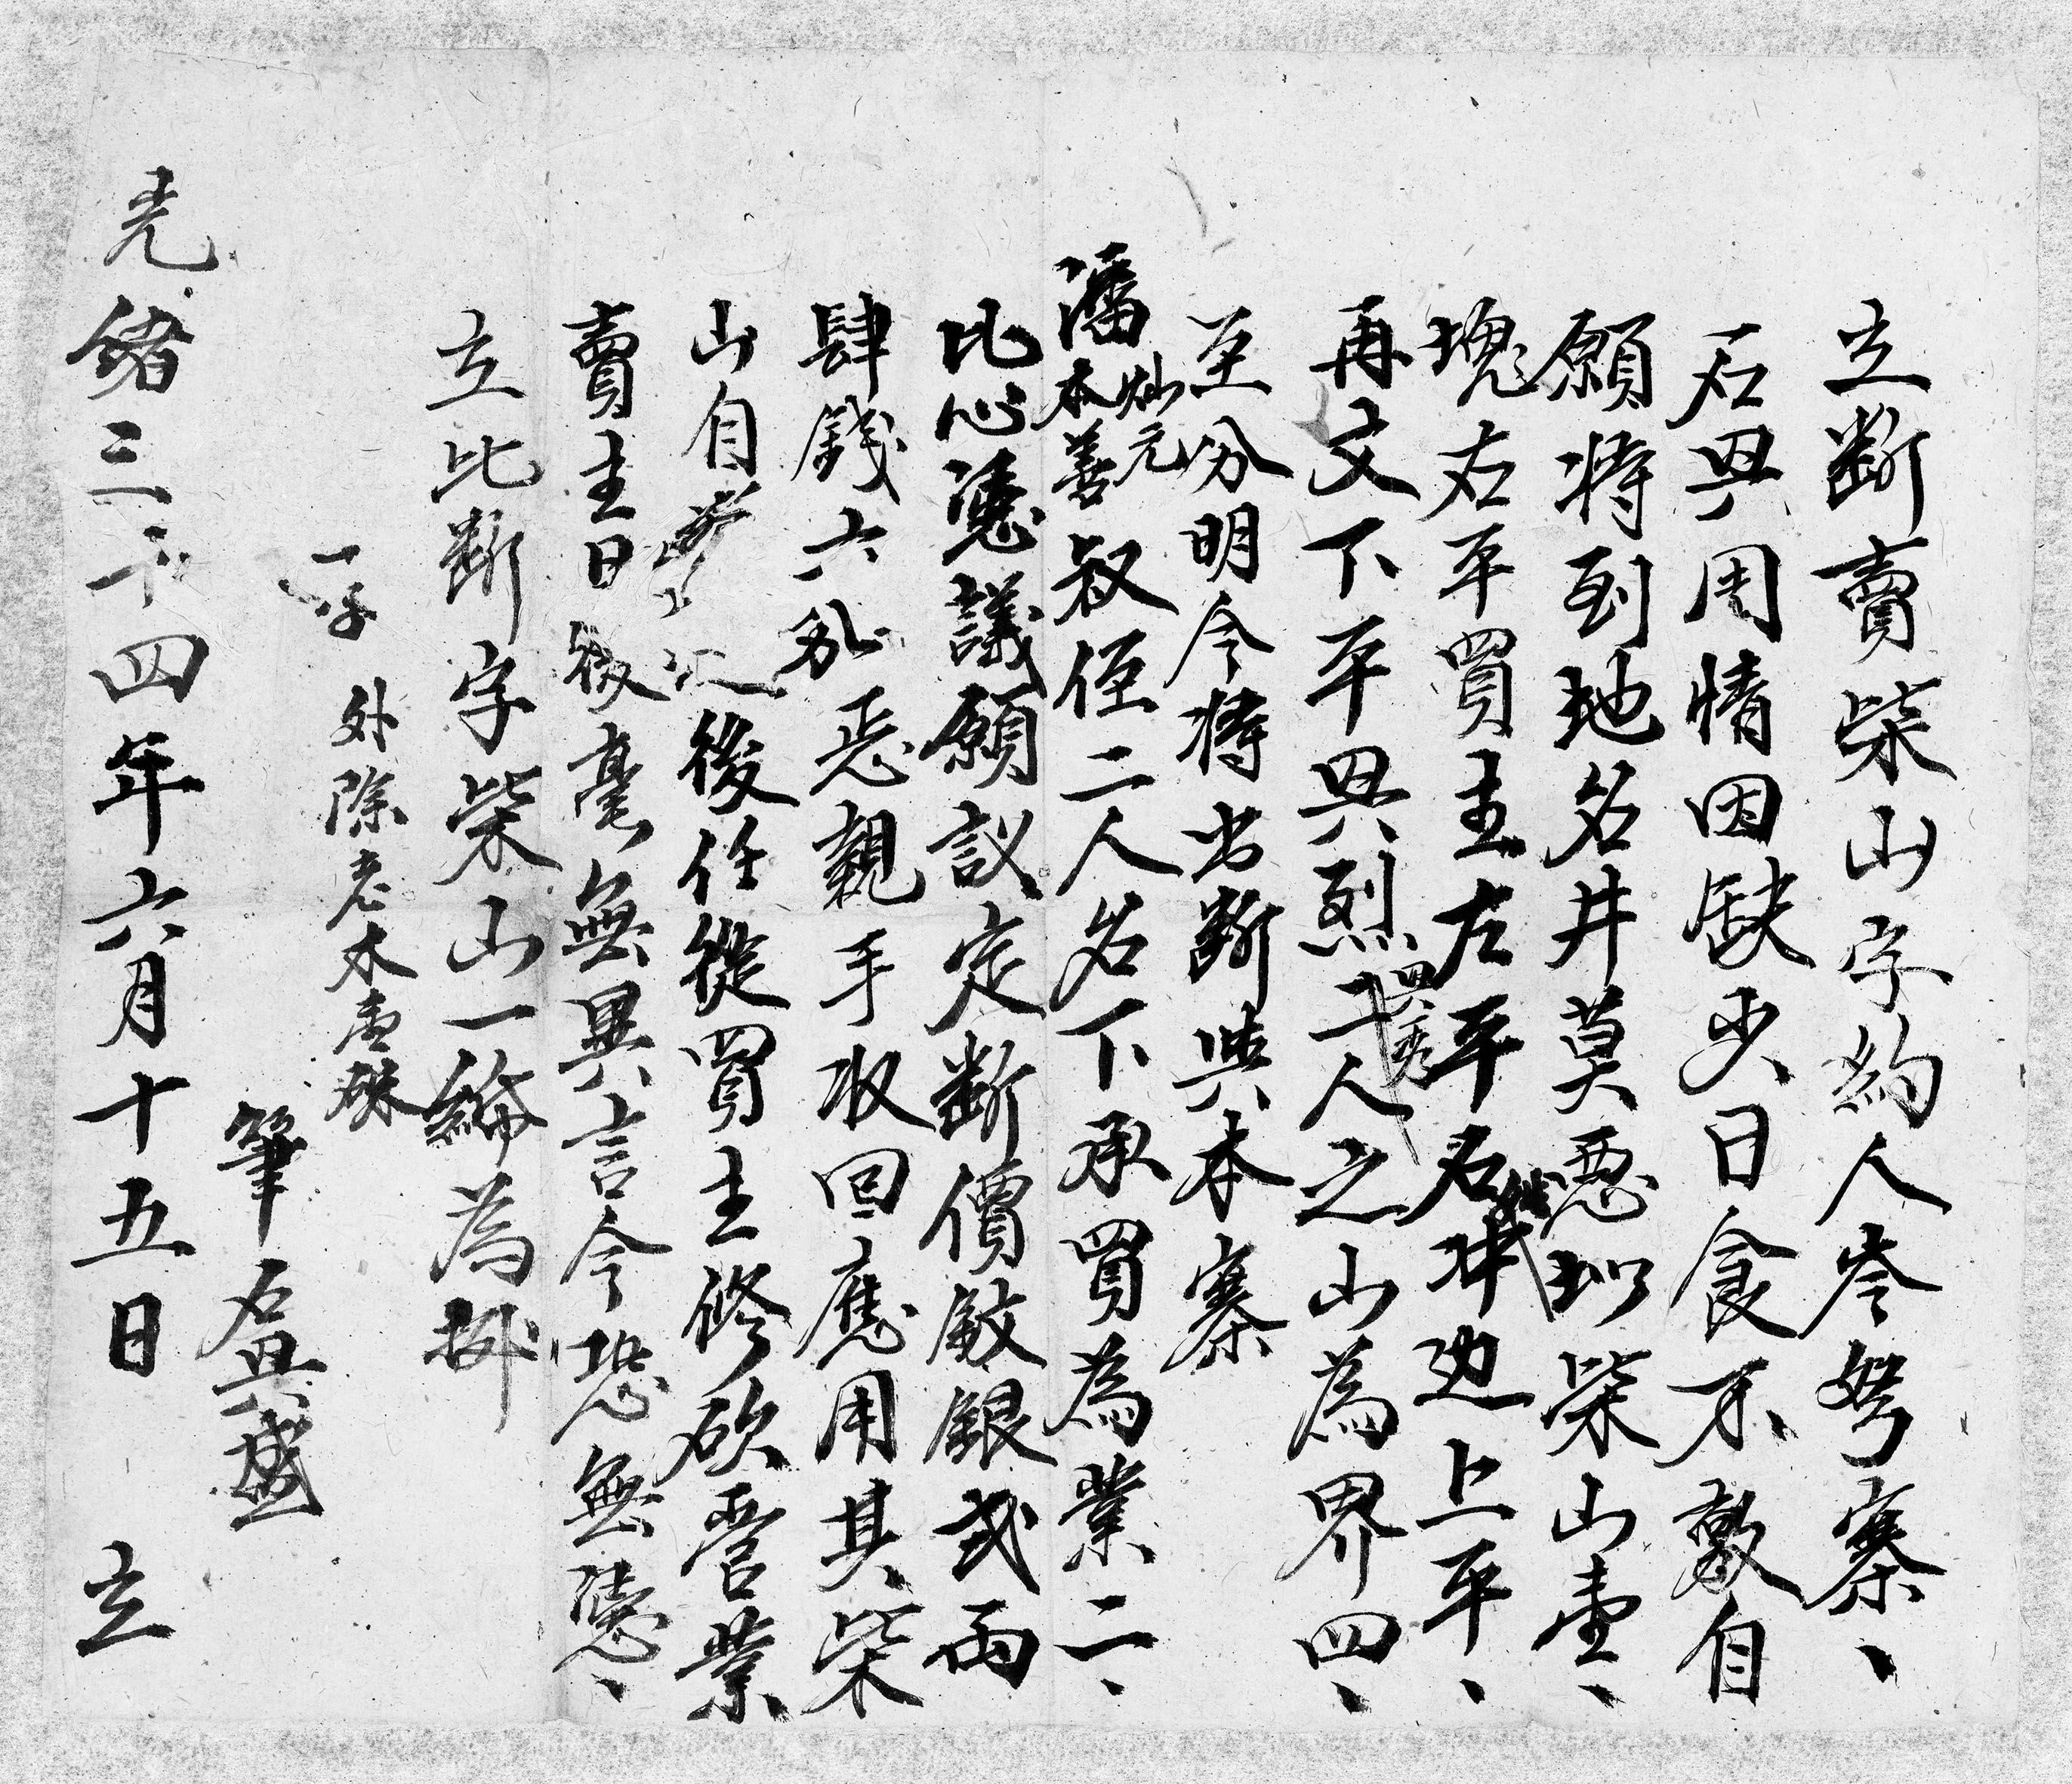 立斷賣柴山字約人岑努寨、
石興周情因缺少日食不敷自
願將到地名井莫惡㘦柴山壹、
塊右平買主左平石坤边上平、
再文下平興烈二人之山為界四、
至分明今將出斷与本寨
潘本善灿元叔侄二人名下承買為業二、
比心憑議願議定斷價紋銀弍両
肆錢六分恶親手收回應用其柴
山自賣之後任從買主修砍管業
賣主日後毫無異言今恐無憑、
立此斷字柴山一紙為拠
一字 外除老木壹硃
筆石興盛
光緒三十四年六月十五日 立